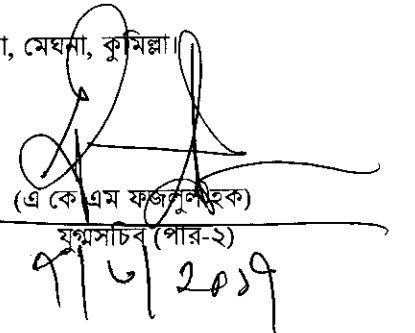 , মেঘনা, কুমিল্লা।
(এ কে এম ফজলুল হক)
যুগ্মসচিব (পার-২)
২০১৭